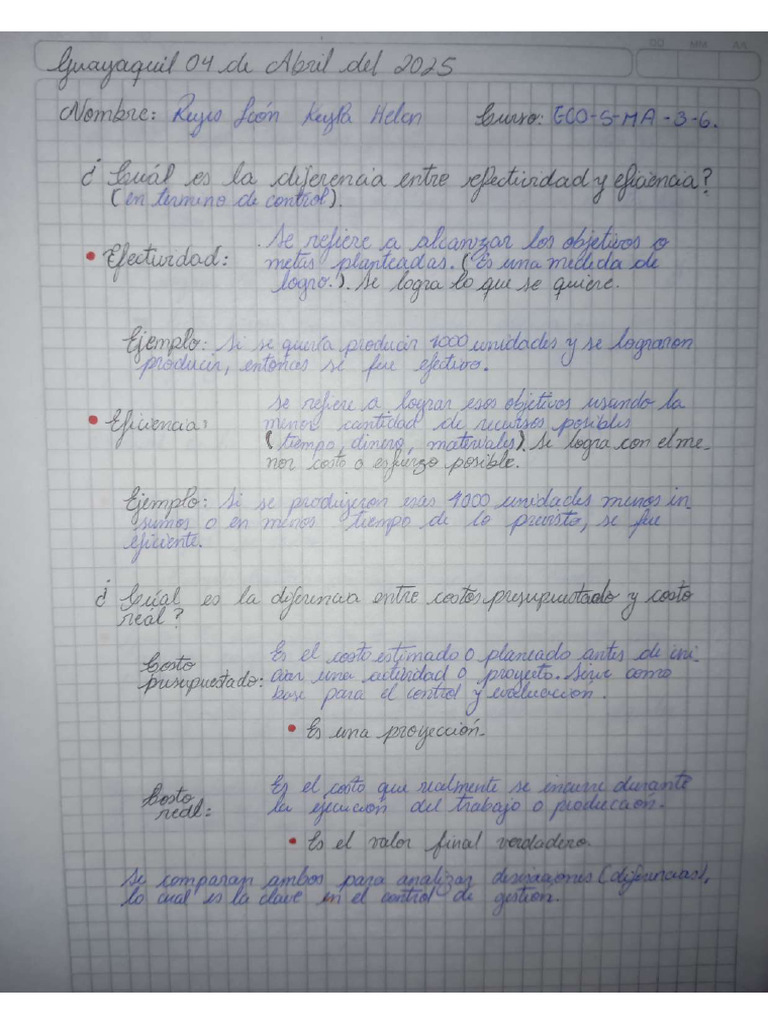 DD MM AA
Guayaquil 04 de Abril del 2025
Nombre: Reyes León Keyla Helen Curso: ECO-S-MA-3-6.
¿Cuál es la diferencia entre efectividad y eficiencia?
(en termino de control).
• Efectividad: Se refiere a alcanzar los objetivos o
metas planteadas. (Es una medida de
logro.). Se logra lo que se quiere.
Ejemplo: Si se quería producir 1000 unidades y se lograron
producir, entonces si fue efectivo.
• Eficiencia: se refiere a lograr esos objetivos usando la
menor cantidad de recursos posibles
(tiempo, dinero, materiales). Se logra con el me-
nor costo o esfuerzo posible.
Ejemplo: Si se produjeron esas 1000 unidades menos in_
sumos o en menos tiempo de lo previsto, se fue
eficiente.
¿Cuál es la diferencia entre costos presupuestado y costo
real?
Costo presupuestado: Es el costo estimado o planeado antes de ini-
ciar una actividad o proyecto. Sirve como
base para el control y evaluacion.
• Es una proyección.
Costo real: Es el costo que realmente se incurre durante
la ejecución del trabajo o producción.
• Es el valor final verdadero.
Se comparan ambos para analizar desviaciones (diferencias),
lo cual es la clave en el control de gestión.